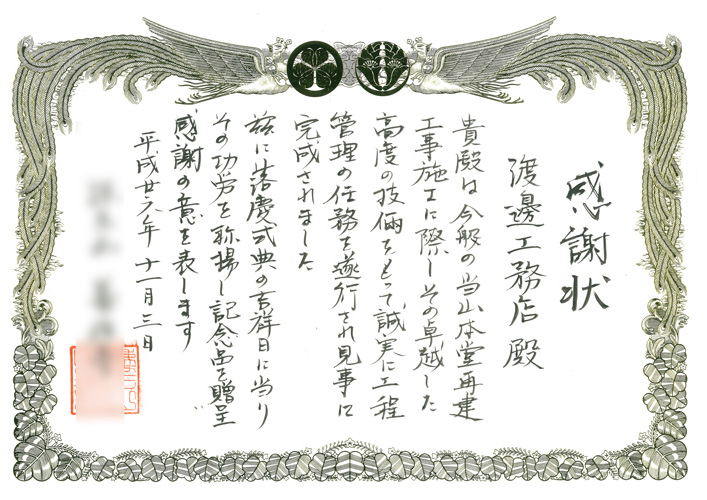 感謝状
渡邊工務店 殿
貴殿は今般の当山本堂再建
工事施工に際しその卓越した
高度の技倆をもって誠実に工程
管理の任務を遂行され見事に
完成されました
茲に落慶式典の吉祥日に当り
その功労を称揚し記念品を贈呈
感謝の意を表します
平成廿六年 十一月三日